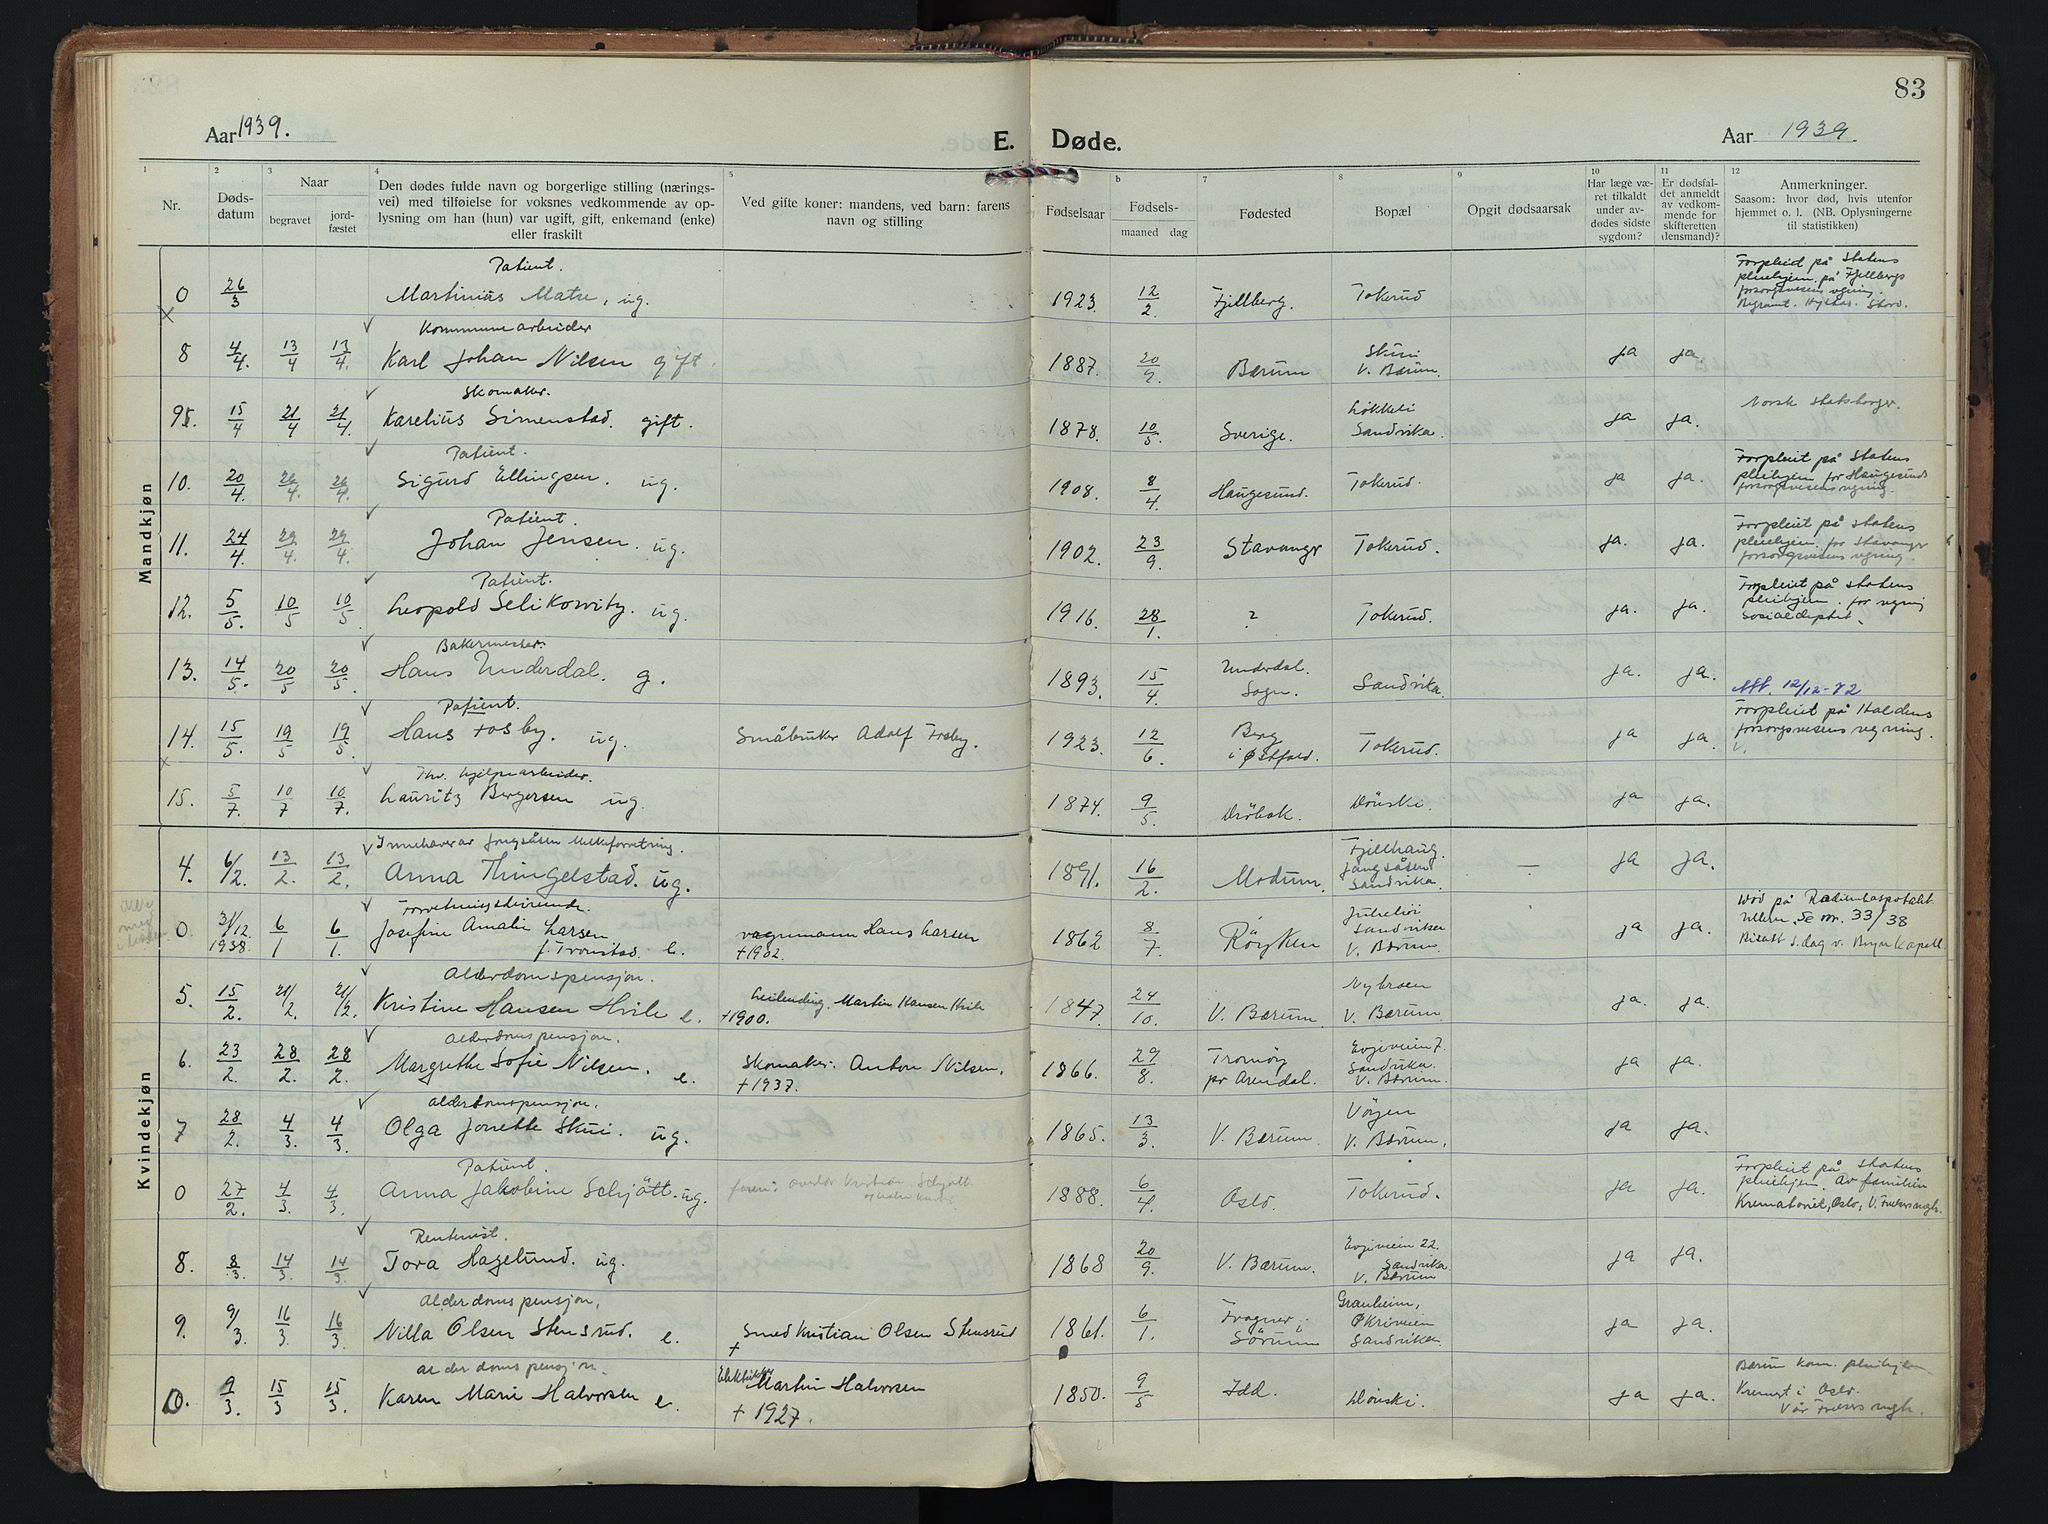 83
Aar 1939.
E. Døde.
Aar 1939.
1 2 3 4 5 b 7 8 9 10 11 12
Nr.
Døds-
datum
Naar
begravet
jord-
fæstet
Den dødes fulde navn og borgerlige stilling (nærings-
vei) med tilføielse for voksnes vedkommende av op-
lysning om han (hun) var ugift, gift, enkemand (enke)
eller fraskilt
Ved gifte koner: mandens, ved barn: farens
navn og stilling
Fødselsaar
Fødsels-
maaned dag
Fødested
Bopæl
Opgit dødsaarsak
Har læge væ-
ret tilkaldt
under av-
dødes sidste
sygdom?
Er dødsfal-
det anmeldt
av vedkom-
mende for
skifteretten
(lensmand)?
Anmerkninger.
Saasom: hvor død, hvis utenfor
hjemmet o. l. (NB. Oplysningerne
til statistikken)
Mandkjøn
Patient. Forpleiet på Statens
0 26/3 Martinius Matre, ug. 1923. 12/2 Fjellberg. Tokerud pleiehjem på Fjellbergs
forsorgsvesens regning.
Kommunearbeider
8 4/4. 13/4 13/4. Karl Johan Nilsen gift. 1887. 20/9. Bærum Skui V. Bærum. ja ja.
Skomaker.
9. 15/4 21/4 21/4. Karelius Simenstad. gift. 1878. 10/5. Sverige. Løkkeli Sandvika. ja ja. Norsk statsborger.
Patient. Forpleiet på Statens
10. 20/4. 26/4. 26/4. Sigurd Ellingsen. ug. 1908. 8/4 Haugesund. Tokerud. ja ja. pleiehjem for Haugesunds
forsorgsvesens regning.
Patient. Forpleiet på Statens
11. 24/4. 29/4. 29/4. Johan Jensen. ug. 1902. 23/9. Stavanger Tokerud. ja. ja. pleiehjem for Stavanger
forsorgsvesens regning.
Patient. Forpleiet på Statens
12. 5/5. 10/5 10/5. Leopold Selikowitz. ug. 1916. 28/1. ? Tokerud. ja. ja. pleiehjem. for regning
Sosialdeptet.
Bakermester.
13. 14/5. 20/5 20/5. Hans Underdal. g. 1893. 15/4 Underdal Sogn. Sandvika. ja. ja.
12/12-72
Patient. Forpleiet på Haldens
14. 15/5. 19/5 19/5. Hans Fosby. ug. Småbruker Adolf Fosby. 1923. 12/6 Berg i Østfold. Tokerud. ja ja. forsorgsvesens regning.
Fhv. hjelpearbeider.
15. 5/7 10/7 10/7. Lauritz Bergersen ug. 1874. 9/5. Drøbak. Dønski. ja ja.
Kvindekjøn
Innehaver av Jongsåsen Melkeforretning.
4. 6/2. 13/2. 13/2. Anna Thingelstad. ug. 1891. 16/2. Modum. Fjellhaug. Jongsåsen Sandvika. — ja ja.
Forretningsdrivende.
0. 31/12 1938. 6/1 6/1 Josefine Amalie Larsen f. Tronstad. e. vognmann Hans Larsen +1902. 1862 8/7. Røyken Sandvika V. Bærum. ja ja. Død på Radiumhospitalet
Ullern. Se nr. 33/38
Alderdomspensjon.
5. 15/2. 21/2 21/2. Kristine Hansen Hvile e. Leilending. Martin Hansen Hvile +1900. 1847. 24/10. V. Bærum. Nybroen V. Bærum. ja. ja.
Alderdomspensjon.
6. 23/2. 28/2. 28/2. Margrethe Sofie Nilsen. e. Skomaker. Anton Nilsen. +1937. 1866. 29/8. Tromøy pr Arendal. Evjeveien 7. Sandvika. V. Bærum. ja ja.
Alderdomspensjon.
7 28/2. 4/3. 4/3. Olga Jonette Skui. ug. 1865. 13/3. V. Bærum. Vøyen V. Bærum. ja ja.
Patient. Forpleiet på Statens
0 27/2. 4/3. 4/3. Anna Jakobine Schjøtt. ug. faren: overlær Kristian Schjøtt 1888. 6/4 Oslo. Tokerud. ja ja. pleiehjem. Av familien
Krematoriet, Oslo, V. Frelsers
Rentenist.
8. 8/3. 14/3. 14/3. Tora Hagelund. ug. 1868 20/9. V. Bærum. Evjeveien 22. Sandvika V. Bærum ja ja.
Alderdomspensjon.
9. 9/3. 16/3. 16/3. Nilla Olsen Stensrud. e. Smed Kristian Olsen Stensrud + 1861. 6/1. Frogner i Sørum Granheim, Sandvika ja ja.
Alderdomspensjon. Bærum kom. pleiehjem
0. 9/3. 15/3 15/3. Karen Marie Halvorsen e. Martin Halvorsen + 1927. 1850. 9/5 Idd. Dønski. ja ja. Kremert i Oslo.
Vår Frelsers